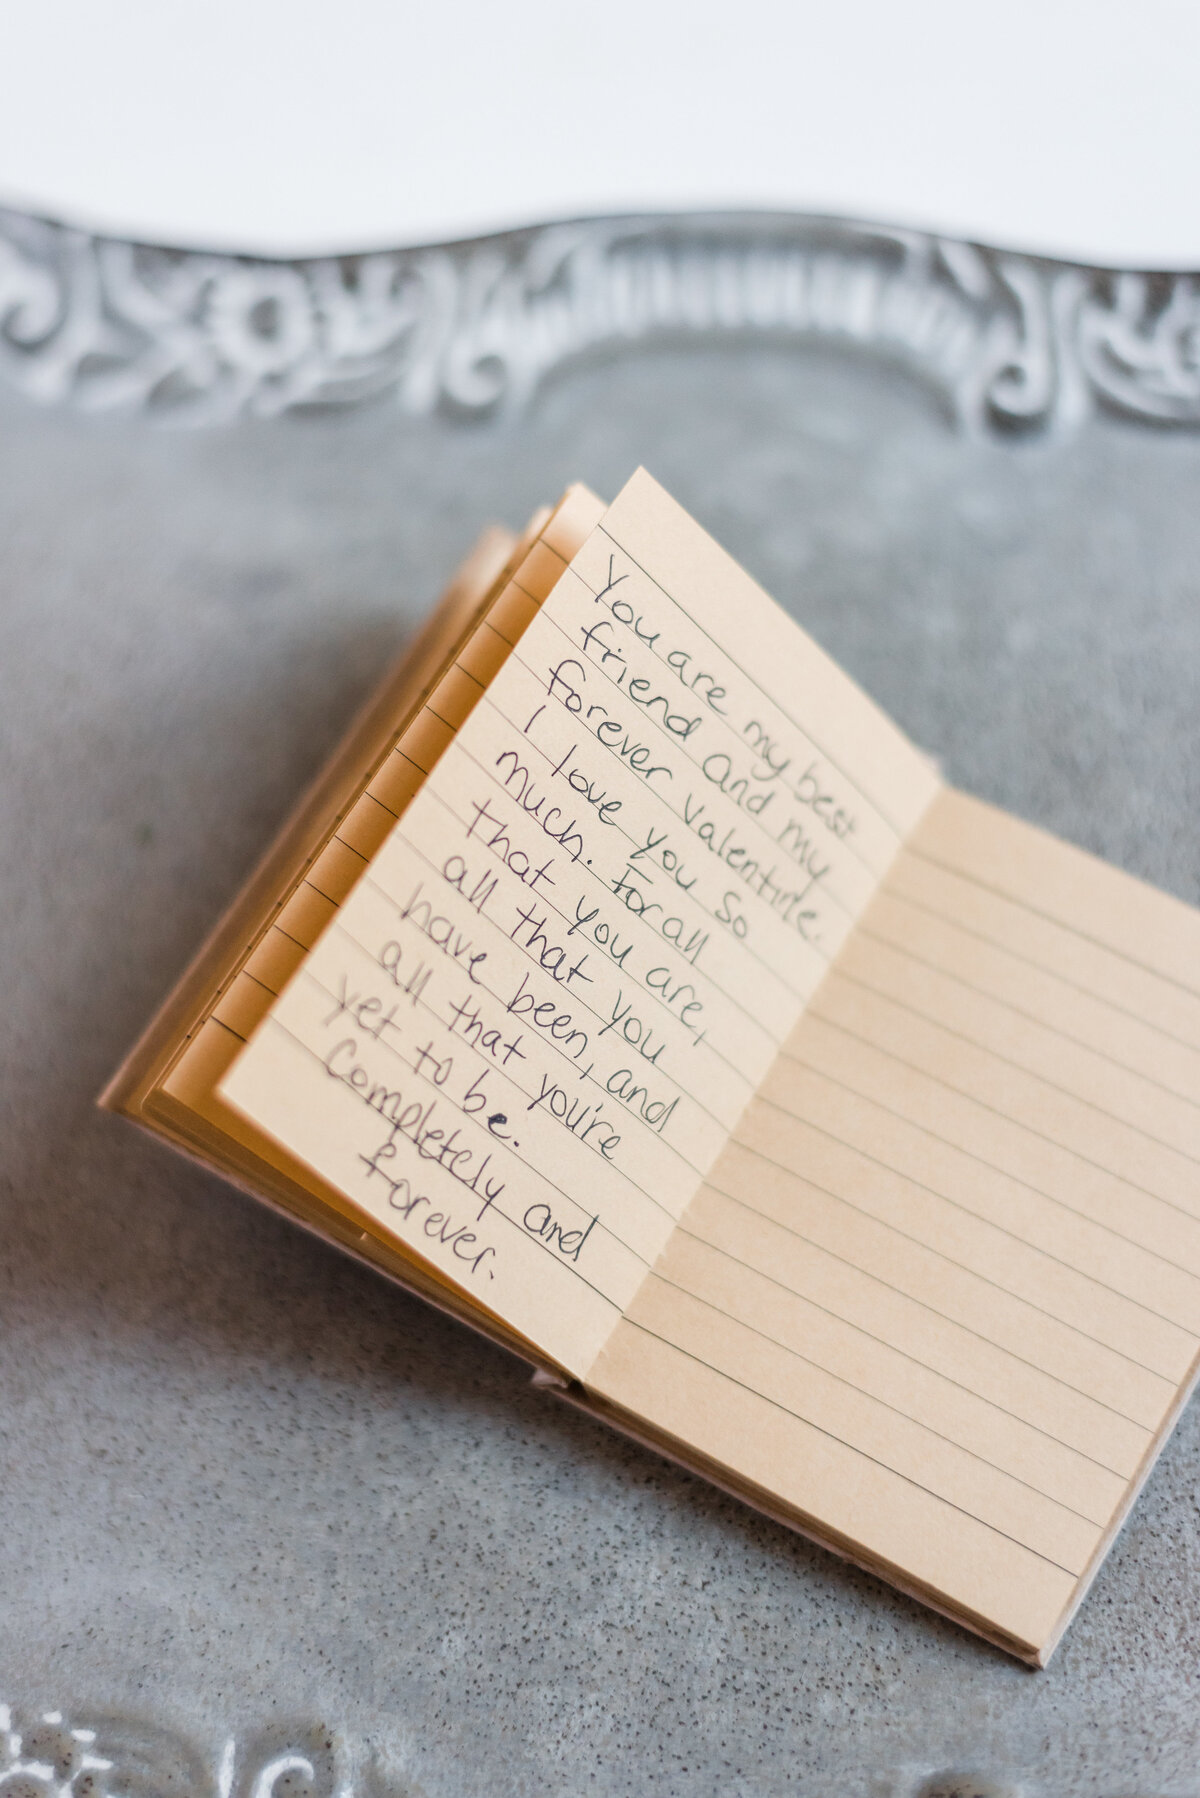 You are my best
friend and my
forever valentine.
I love you so
much. For all
that you are,
all that you
have been, and
all that you're
yet to be.
Completely and
forever.